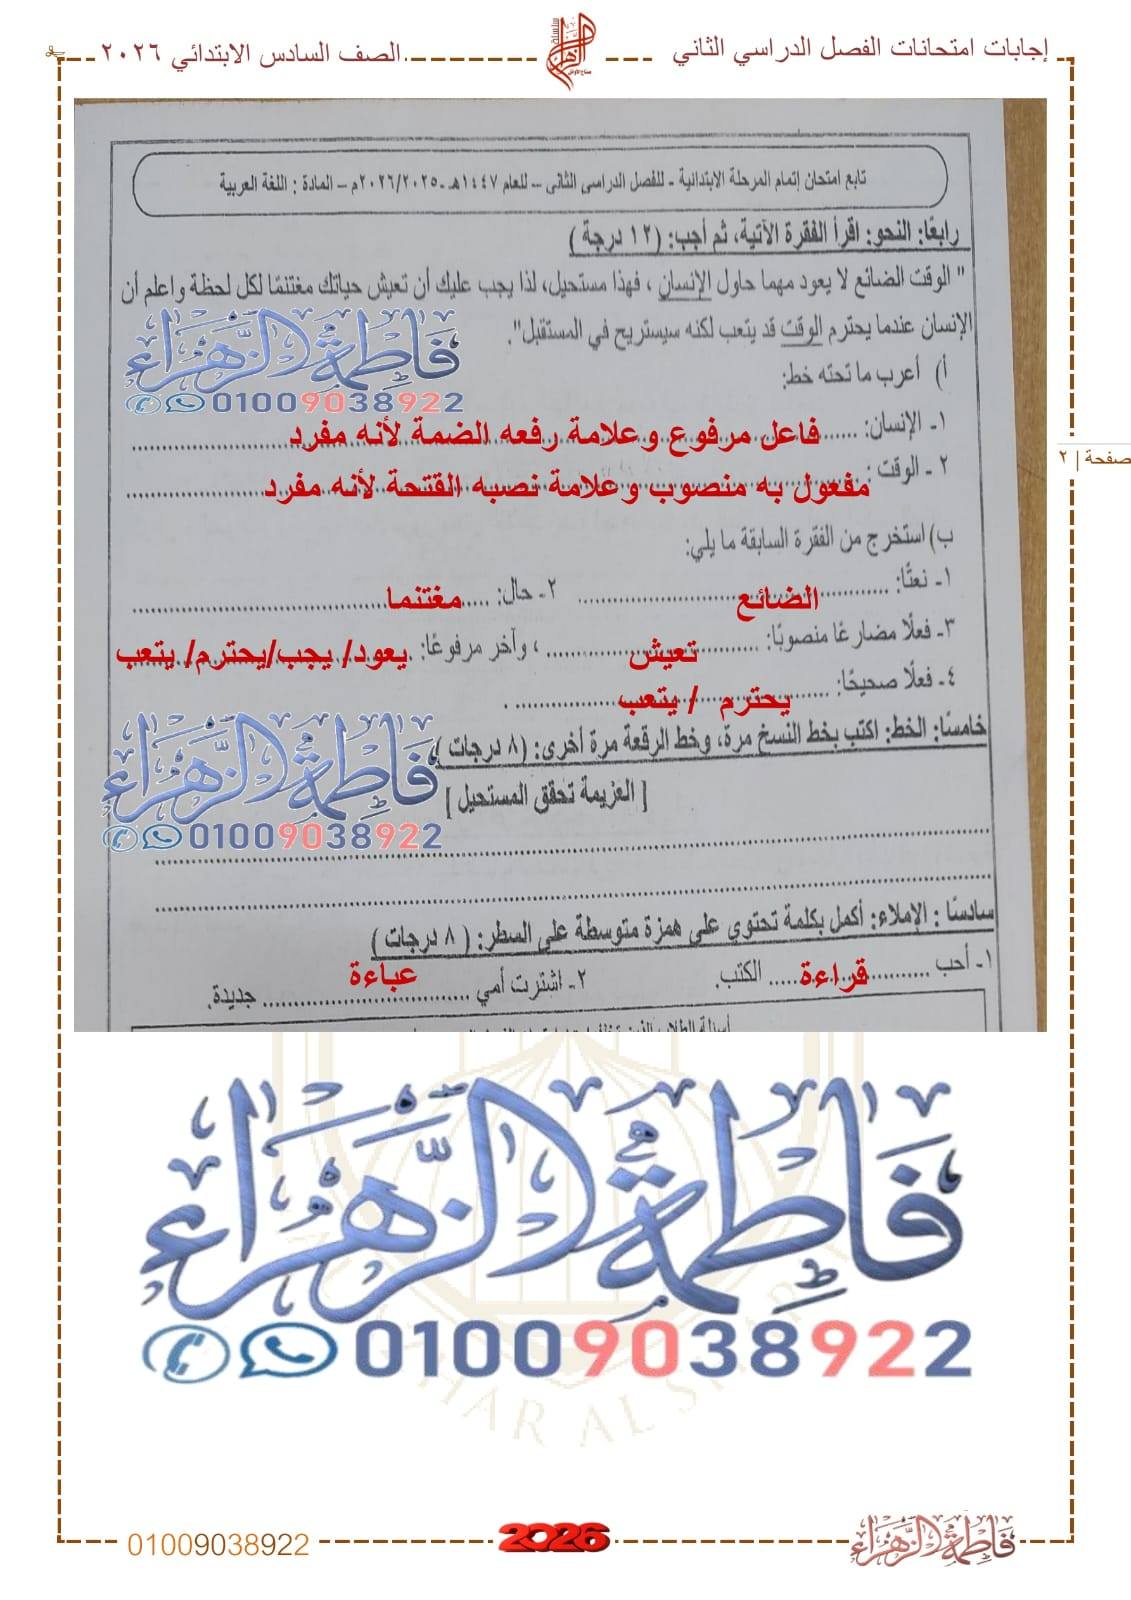 إجابات امتحانات الفصل الدراسي الثاني
الصف السادس الابتدائي ٢٠٢٦
تابع امتحان إتمام المرحلة الإبتدائية - للفصل الدراسى الثانى – للعام ١٤٤٧هـ -٢٠٢٦/٢٠٢٥م – المادة : اللغة العربية
رابعًا: النحو: اقرأ الفقرة الآتية، ثم أجب: (١٢ درجة )
" الوقت الضائع لا يعود مهما حاول الإنسان ، فهذا مستحيل، لذا يجب عليك أن تعيش حياتك مغتنمًا لكل لحظة واعلم أن
الإنسان عندما يحترم الوقت قد يتعب لكنه سيستريح في المستقبل".
فاطمة الزهراء
أ) أعرب ما تحته خط:
01009038922
١- الإنسان: فاعل مرفوع وعلامة رفعه الضمة لأنه مفرد
صفحة | ٢
٢- الوقت : مفعول به منصوب وعلامة نصبه الفتحة لأنه مفرد
ب) استخرج من الفقرة السابقة ما يلي:
١- نعتًا: الضائع ٢- حال: مغتنما
٣- فعلًا مضارعًا منصوبًا: تعيش ، وآخر مرفوعًا: يعود/ يجب/يحترم/ يتعب
٤- فعلًا صحيحًا: يحترم / يتعب .
خامسًا: الخط: اكتب بخط النسخ مرة، وخط الرقعة مرة أخرى: (٨ درجات)
فاطمة الزهراء
[ العزيمة تحقق المستحيل ]
01009038922
سادسًا : الإملاء: أكمل بكلمة تحتوي على همزة متوسطة على السطر: ( ٨ درجات )
١- أحب قراءة الكتب. ٢- اشترت أمي عباءة جديدة.
فاطمة الزهراء
01009038922
01009038922
2026
فاطمة الزهراء